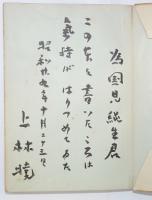 為国見総生君
この本を書いたころは
氣持がはりつめてゐた
昭和廿九年十月二十三日
上林曉